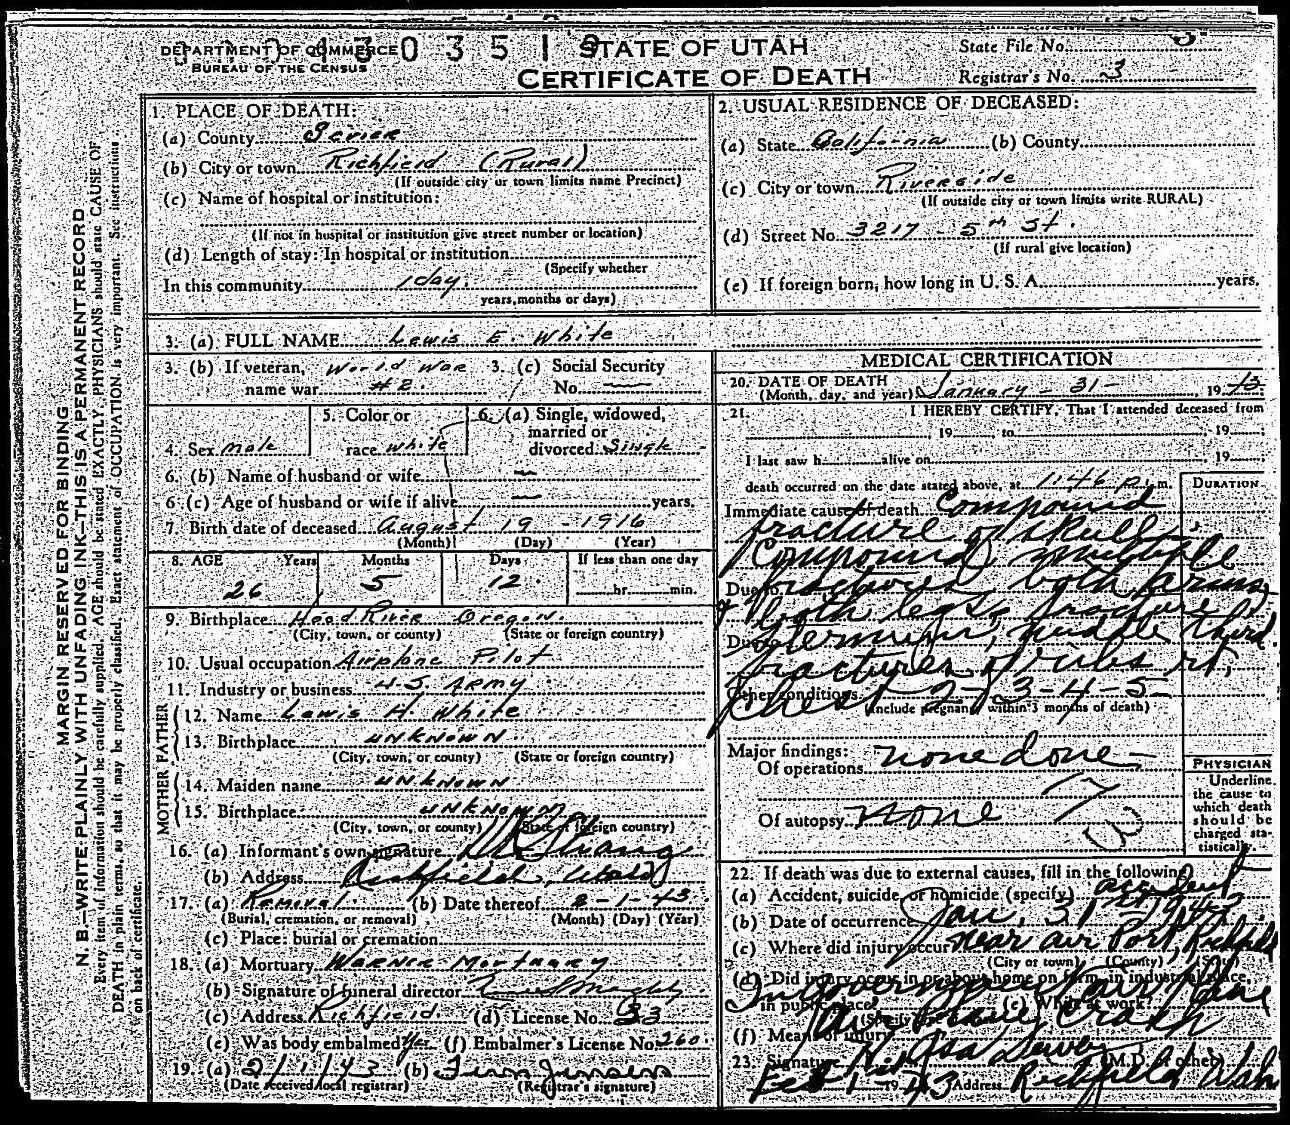 DEPARTMENT OF COMMERCE
BUREAU OF THE CENSUS
STATE OF UTAH
CERTIFICATE OF DEATH
State File No.
Registrar's No. 3
MARGIN RESERVED FOR BINDING
N. B.—WRITE PLAINLY WITH UNFADING INK—THIS IS A PERMANENT RECORD
Every item of information should be carefully supplied. AGE should be stated EXACTLY. PHYSICIANS should state CAUSE OF
DEATH in plain terms, so that it may be properly classified. Exact statement of OCCUPATION is very important. See instructions
on back of certificate.
1. PLACE OF DEATH:
(a) County Sevier
(b) City or town Richfield (Rural)
(If outside city or town limits name Precinct)
(c) Name of hospital or institution:
(If not in hospital or institution give street number or location)
(d) Length of stay: In hospital or institution
(Specify whether
In this community 1 day.
years, months or days)
2. USUAL RESIDENCE OF DECEASED:
(a) State California (b) County
(c) City or town Riverside
(If outside city or town limits write RURAL)
(d) Street No. 3217 - 5th St.
(If rural give location)
(e) If foreign born, how long in U. S. A. years.
3. (a) FULL NAME Lewis E. White
3. (b) If veteran, name war World War #2.
3. (c) Social Security No. —
4. Sex Male
5. Color or race White
6. (a) Single, widowed, married or divorced Single
6. (b) Name of husband or wife —
6 (c) Age of husband or wife if alive — years.
7. Birth date of deceased August 19 - 1916
(Month) (Day) (Year)
8. AGE Years Months Days If less than one day
26 5 12 hr. min.
9. Birthplace Hood River Oregon.
(City, town, or county) (State or foreign country)
10. Usual occupation Airplane Pilot
11. Industry or business U S Army
FATHER
12. Name Lewis H. White
13. Birthplace unknown
(City, town, or county) (State or foreign country)
MOTHER
14. Maiden name unknown
15. Birthplace unknown
(City, town, or county) (State or foreign country)
16. (a) Informant's own signature Strang
(b) Address Richfield, Utah
17. (a) Removal (b) Date thereof 2-1-43
(Burial, cremation, or removal) (Month) (Day) (Year)
(c) Place: burial or cremation
18. (a) Mortuary Warner Mortuary
(b) Signature of funeral director
(c) Address Richfield. (d) License No. 33
(e) Was body embalmed Yes (f) Embalmer's License No. 260
19. (a) 2/1/43 (b) Jensen
(Date received local registrar) (Registrar's signature)
MEDICAL CERTIFICATION
20. DATE OF DEATH
(Month, day, and year) January - 31 - , 1943
21. I HEREBY CERTIFY, That I attended deceased from
, 19 , to , 19 ;
I last saw h alive on , 19 ;
death occurred on the date stated above, at 1:46 p. m.
DURATION
Immediate cause of death Compound
fracture of skull.
Compound multiple
Due to fractures both arms
& both legs, fracture
Due to sternum, middle third.
fractures of ribs rt.
Other conditions chest 2-3-4-5
(Include pregnancy within 3 months of death)
Major findings:
Of operations none done
Of autopsy none
PHYSICIAN
Underline
the cause to
which death
should be
charged sta-
tistically.
22. If death was due to external causes, fill in the following:
(a) Accident, suicide, or homicide (specify) accident
(b) Date of occurrence Jan, 31st - 1943
(c) Where did injury occur near air Port, Richfield
(City or town) (County) (State)
(d) Did injury occur in or about home on farm, in industrial place,
in public place
(Specify
(e) While at work?
(f) Means of injury Air Plane Crash
23. Signature Dewey (M.D. or other)
Feb 1 - 1943 Address Richfield Utah